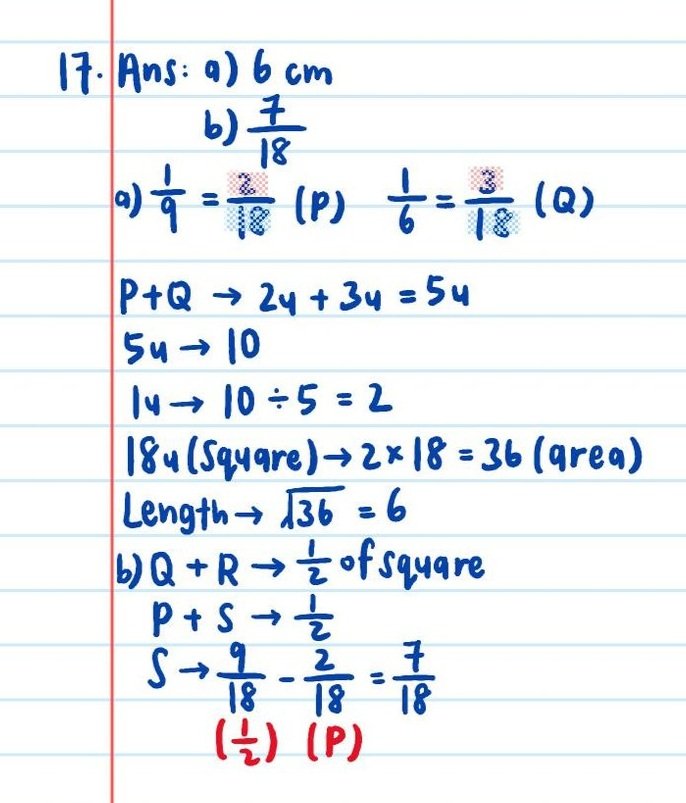 17. Ans: a) 6 cm
b) 7/18
a) 1/9 = 2/18 (P) 1/6 = 3/18 (Q)
P+Q → 2u + 3u = 5u
5u → 10
1u → 10 ÷ 5 = 2
18u (square) → 2 × 18 = 36 (area)
Length → √36 = 6
b) Q + R → 1/2 of square
P + S → 1/2
S → 9/18 - 2/18 = 7/18
(1/2) (P)